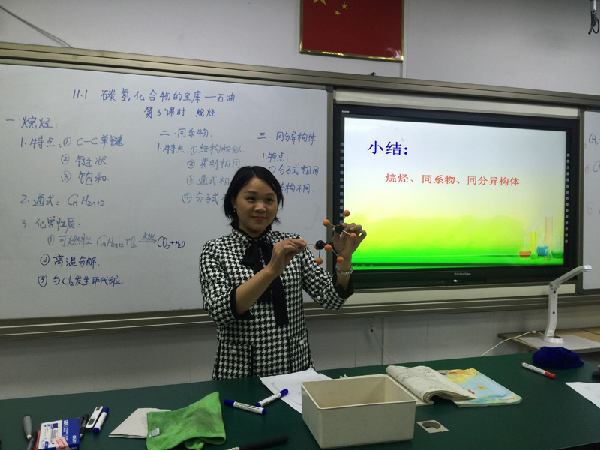 11.1 碳氢化合物的宝库—石油
第3课时 烷烃
一 烷烃:
1. 特点: ① C-C单键
② 链状
③ 饱和
2. 通式:
3. 化学性质:
① 可燃性
② 高温分解
③ 与Cl₂发生取代反应
二. 同系物.
1. 特点 ① 结构相似
② 类别相同
③ 通式
④ 分子式
三 同分异构体
1. 特点
分子式相同
结构不同.
小结:
烷烃、同系物、同分异构体